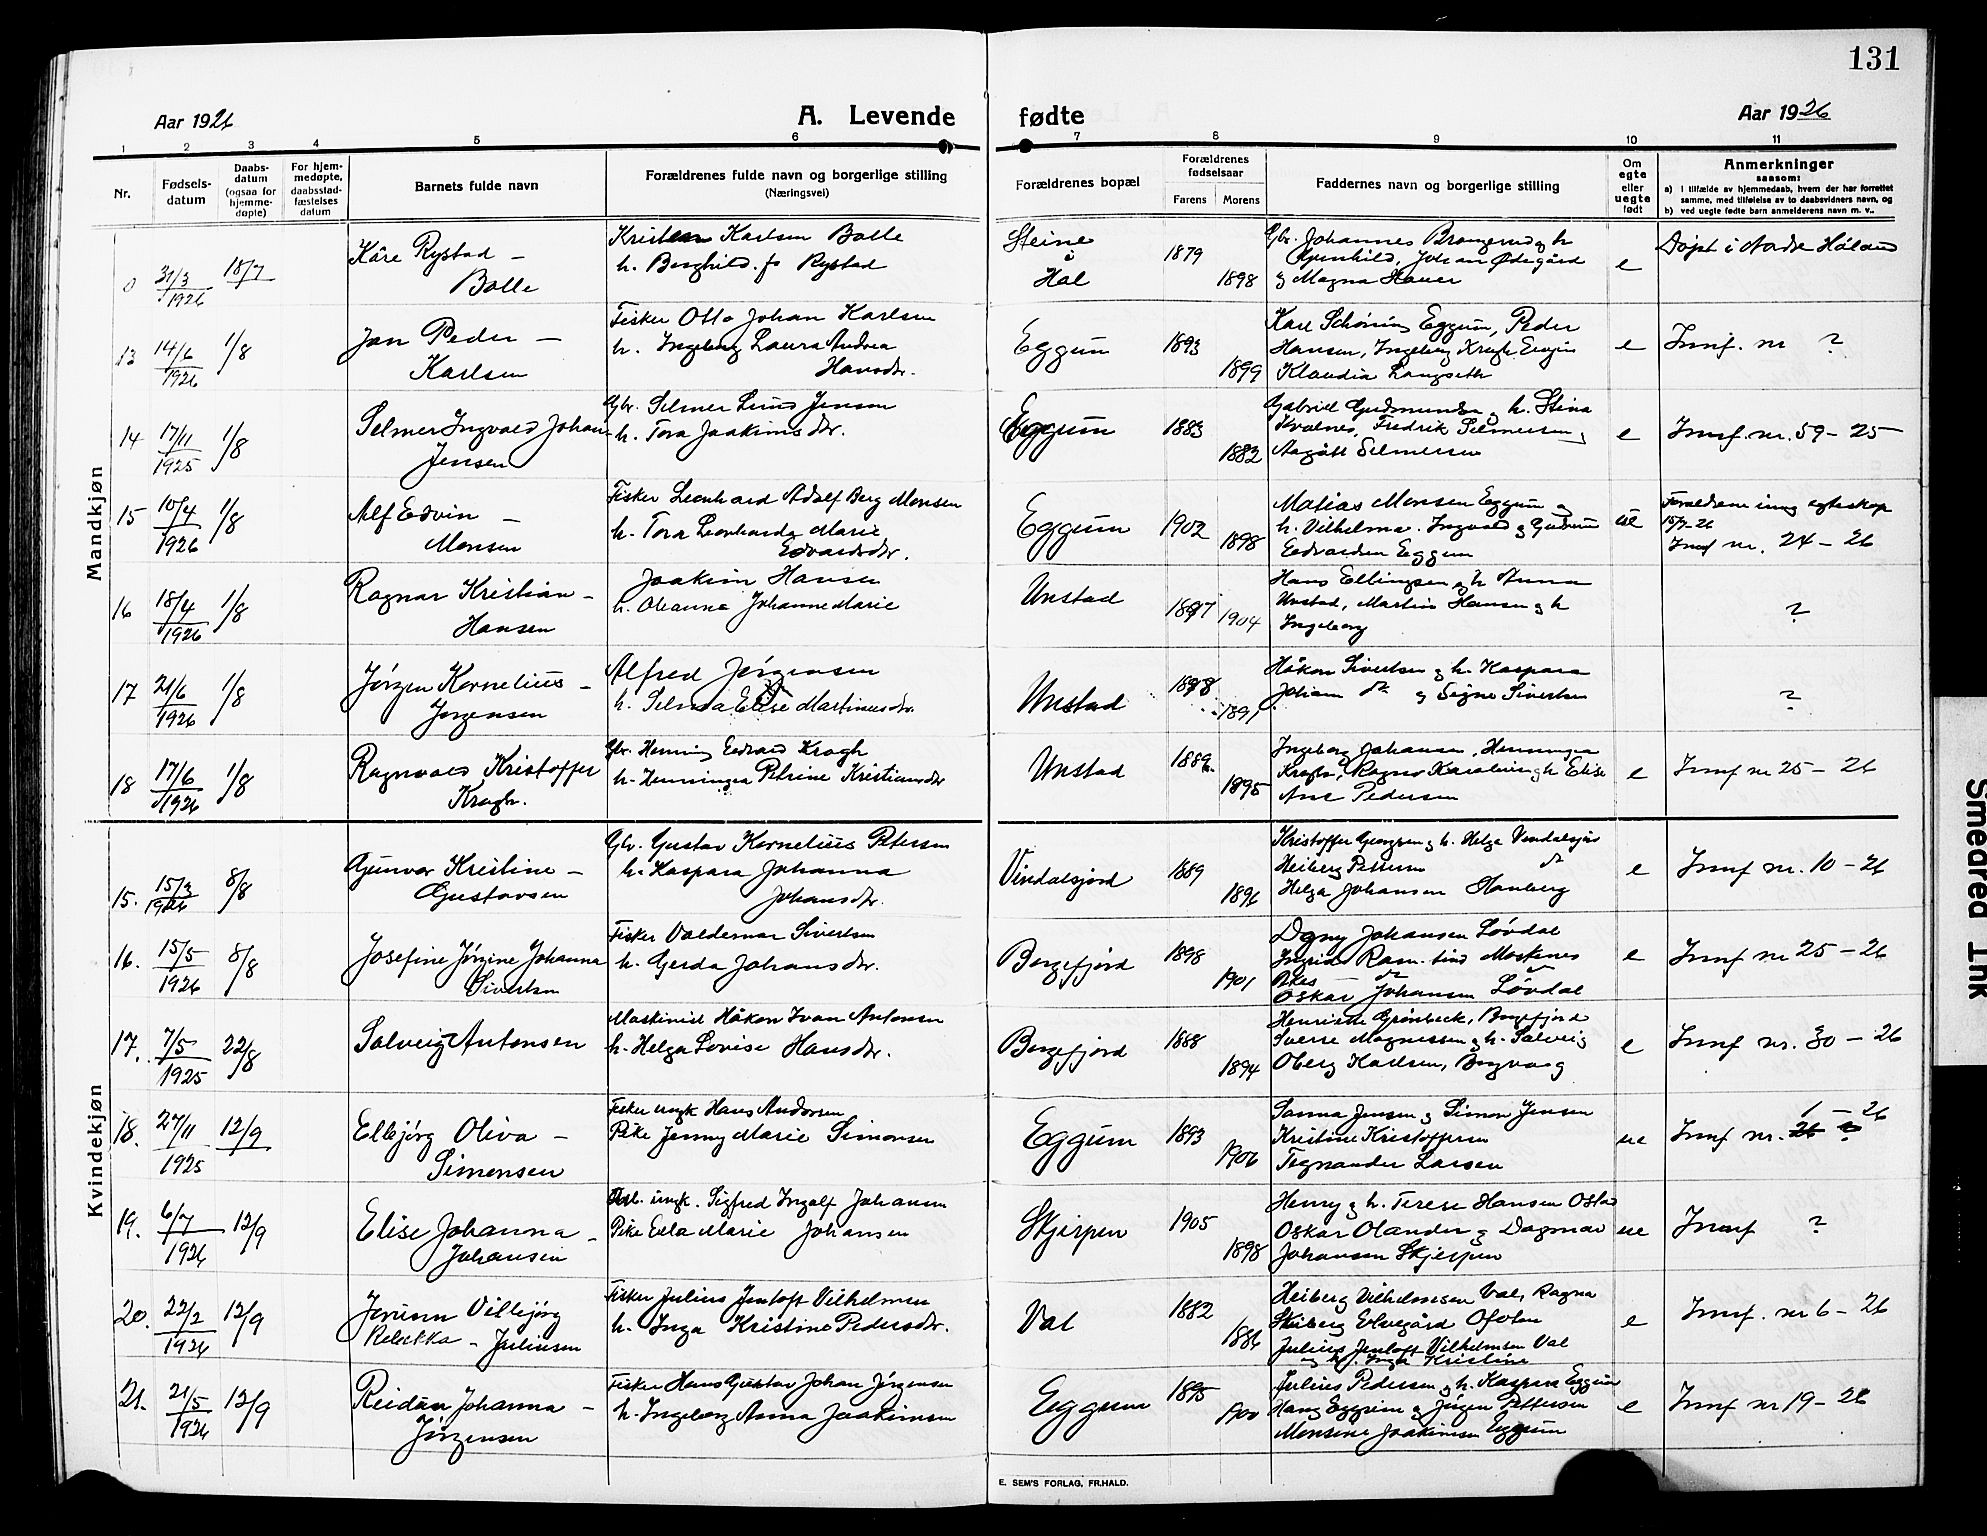 131
Aar 1926
A. Levende
fødte
Aar 1926
1 2 3 4 5 6 7 8 9 10 11
Nr.
Fødsels-
datum
Daabs-
datum
(ogsaa for
hjemme-
døpte)
For hjem-
medøpte,
daabsstad-
fæstelses
datum
Barnets fulde navn
Forældrenes fulde navn og borgerlige stilling
(Næringsvei)
Forældrenes bopæl
Forældrenes
fødselsaar
Farens Morens
Faddernes navn og borgerlige stilling
Om
egte
eller
uegte
født
Anmerkninger
saasom:
a) i tilfælde av hjemmedaab, hvem der har forrettet
samme, med tilføielse av to daabsvidners navn, og
b) ved uegte fødte barn anmelderens navn m. v..
Mandkjøn
0 31/3 1926 18/7
Kåre Rystad –
Bolle
Kristian Karlsen Bolle
h. Borghild f. Rystad
Steine
i
Hol
1879
1898
Gbr. Johannes Brangerud og h
Johan Ødegård
og Magna Hauer
e
Døpt i Nordre Høland
13 14/6 1926 1/8
Jan Peder –
Karlsen
Fisker Otto Johan Karlsen
h. Ingeborg Laura Andrea
Hansdtr.
Eggum
1893
1899
Kare Schøning Eggum, Peder
Hansen, Ingeborg Krogh
Klaudia Langseth
e
Innf. nr ?
14 17/11 1925 1/8
Selmer Ingvald Johan
Jensen
Gbr. Selmer Lund Jensen
h. Tora Joakimsdtr.
Eggum
1883
1882
Gabriel Gudmundsen og h. Stina
Kvalnes, Fredrik Selmersen og
Aagått Selmersen
e
Innf. nr. 59 – 25
15 10/4 1926 1/8
Alf Edvin –
Monsen
Fisker Leonhard Adolf Berg Monsen
h. Tora Leonharda Marie
Edvardsdtr.
Eggum
1902
1898
Matias Monsen Eggum og
h. Vilhelma. Ingvald og Gudrun
Edvardsen Eggum
ue
Forældrene inng egteskap
15/7–26
Innf nr. 24 – 26
16 18/4 1926 1/8
Ragnar Kristian –
Hansen
Joakim Hansen
h. Oleanna Johanne Marie
Unstad
1897 1904
Hans Ellingsen og h Anna
Unstad, Martin Hansen og h
Ingeborg
?
17 21/6 1926 1/8
Jørgen Kornelius –
Jørgensen
Alfred Jørgensen
h. Selma Elise Martinusdtr.
Unstad
1898
1891
Håkon Sivertsen og h. Kaspara
Johan do og Signe Sivertsen
?
18 17/6 1926 1/8
Ragnvald Kristoffer
Krogh.
Gbr. Henning Edvard Krogh
h. Henningea Petrine Kristiansdtr
Unstad
1889
1895
Ingeborg Johansen, Henningea
Krogh, Ragnv Karolius og h Elise
Ane Pedersen
e
Innf nr 25 – 26
Kvindekjøn
15. 15/3 1926 8/8
Gunvor Kristine –
Gustavsen
Gbr. Gustav Kornelius Petersen
h. Kaspara Johanna
Johansdtr.
Vindalsjord
1889
1896
Kristoffer Georgsen og h. Helga Vendalsjord
Heiberg Petersen do
Helga Johansen Hamberg
e
Innf nr. 10 – 26
16. 15/5 1926 8/8
Josefine Jørgine Johanna
Sivertsen
Fisker Valdemar Sivertsen
h. Gerda Johansdtr.
Borgefjord
1898
1901
Dagny Johansen Løvdal
Ingrid Rasmussen Moskenes
Oskar Johansen Løvdal
e
Innf nr 25 – 26
17. 7/5 1925 22/8
Solveig Antonsen
Maskinist Håkon Ivan Antonsen
h. Helga Lovise Hansdtr.
Borgefjord
1888
1894
Henriette Grønbeck, Borgefjord
Sverre Magnussen og h. Solveig
Oberg Karlsen, Borgvaag
e
Innf nr. 30 – 26
18. 27/11 1925 12/9
Ellbjørg Oliva –
Simonsen
Fisker ungk Hans Andorsen
Pike Jenny Marie Simonsen
Eggum
1893
1906
Sanna Jensen og Simon Jensen
Kristine Kristoffersen
Tegnander Larsen
ue
Innf nr. 1 – 26
19. 6/7 1926 12/9
Elise Johanna –
Johansen
ungk. Sigfred Ingolf Johansen
Pike Edla Marie Johansen
Skjerpen
1905
1898
Henry og h. Terese Hansen
Oskar Olander og Dagmar
Johansen Skjerpen
ue
Innf ?
20. 22/2 1926 12/9
Jorunn Villbjørg
Rebekka – Juliusen
Fisker Julius Jentoft Vilhelmsen
h. Inga Kristine Pedersdtr.
Val
1882
1886
Heiberg Vilhelmsen Val, Ragna
Skiberg Elvegård Ofoten
Julius Jentoft Vilhelmsen Val
og h. Inga Kristine
e
Innf. nr 6 – 26
21. 21/5 1926 12/9
Reidun Johanna –
Jørgensen
Fisker Hans Gustav Johan Jørgensen
h. Ingeborg Anna Joakimsen
Eggum
1895
1900
Julius Pedersen og h. Kaspara Eggum
Hans Eggum og Jørgen Pettersen
Monsine Joakimsen Eggum
e
Innf nr 19 – 26
E. SEM'S FORLAG, FR.HALD.
Smeared Ink